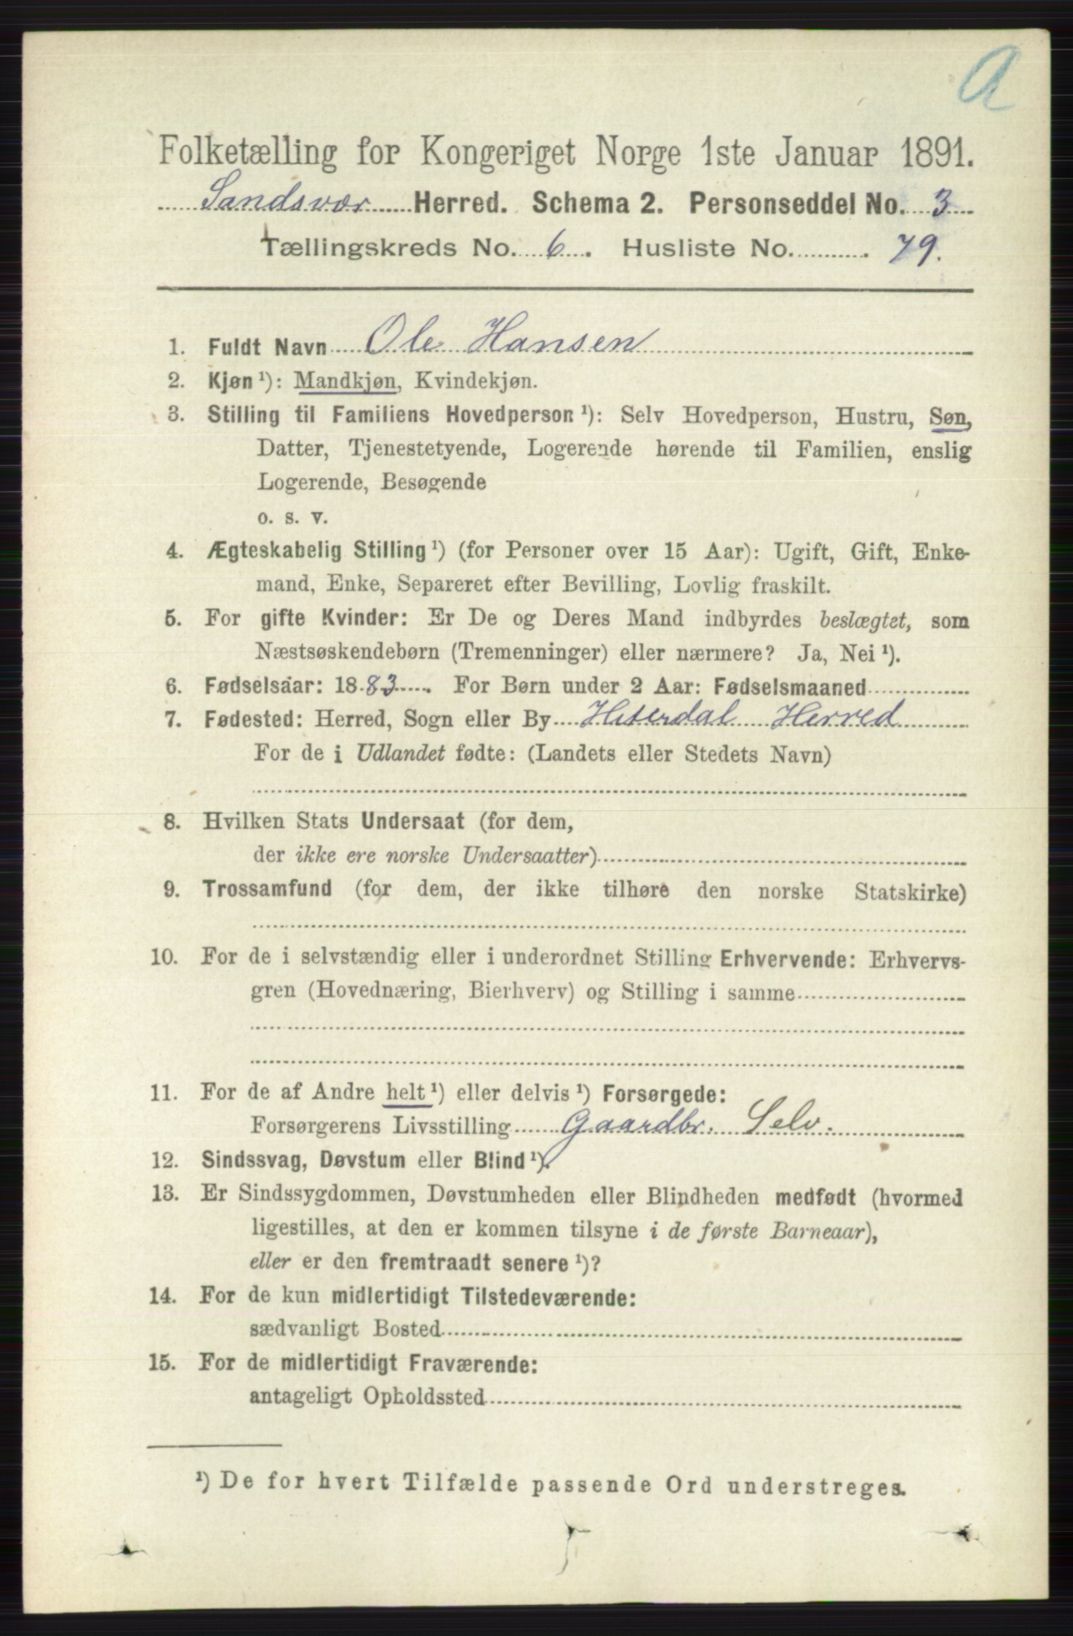 A
Folketælling for Kongeriget Norge 1ste Januar 1891.
Sandsvær Herred. Schema 2. Personseddel No. 3
Tællingskreds No. 6. Husliste No. 79.
1. Fuldt Navn Ole Hansen
2. Kjøn ¹): Mandkjøn, Kvindekjøn.
3. Stilling til Familiens Hovedperson ¹): Selv Hovedperson, Hustru, Søn,
Datter, Tjenestetyende, Logerende hørende til Familien, enslig
Logerende, Besøgende
o. s. v.
4. Ægteskabelig Stilling ¹) (for Personer over 15 Aar): Ugift, Gift, Enke-
mand, Enke, Separeret efter Bevilling, Lovlig fraskilt.
5. For gifte Kvinder: Er De og Deres Mand indbyrdes beslægtet, som
Næstsøskendebørn (Tremenninger) eller nærmere? Ja, Nei ¹).
6. Fødselsaar: 1883. For Børn under 2 Aar: Fødselsmaaned
7. Fødested: Herred, Sogn eller By Hiterdal Herred
For de i Udlandet fødte: (Landets eller Stedets Navn)
8. Hvilken Stats Undersaat (for dem,
der ikke ere norske Undersaatter)
9. Trossamfund (for dem, der ikke tilhøre den norske Statskirke)
10. For de i selvstændig eller i underordnet Stilling Erhvervende: Erhvervs-
gren (Hovednæring, Bierhverv) og Stilling i samme
11. For de af Andre helt ¹) eller delvis ¹) Forsørgede:
Forsørgerens Livsstilling Gaardbr. Selv.
12. Sindssvag, Døvstum eller Blind ¹).
13. Er Sindssygdommen, Døvstumheden eller Blindheden medfødt (hvormed
ligestilles, at den er kommen tilsyne i de første Barneaar),
eller er den fremtraadt senere ¹)?
14. For de kun midlertidigt Tilstedeværende:
sædvanligt Bosted
15. For de midlertidigt Fraværende:
antageligt Opholdssted
¹) De for hvert Tilfælde passende Ord understreges.